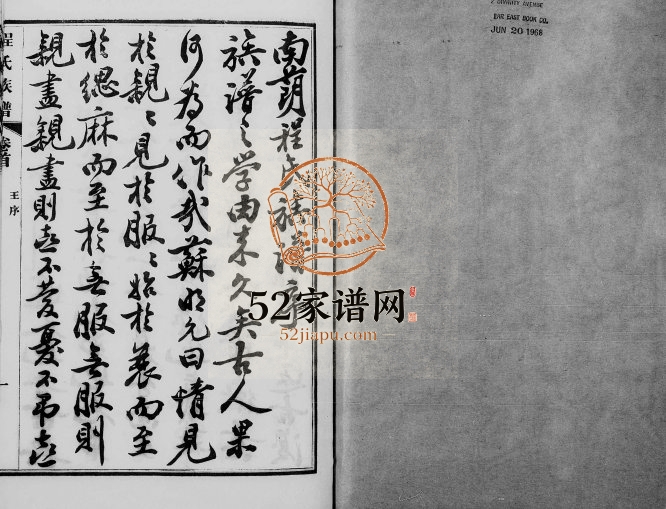 南荫程氏族谱序
族譜之学由来久矣古人果
何為而作哉蘇明允曰情見
於親〻見於服〻始於衰而至
於緦麻而至於無服無服則
親盡親盡則喜不慶憂不弔喜
程氏族譜
卷首
王序
一
52家谱网
52jiapu.com
2 DIVINITY AVENUE
FAR EAST BOOK CO.
JUN 20 1968